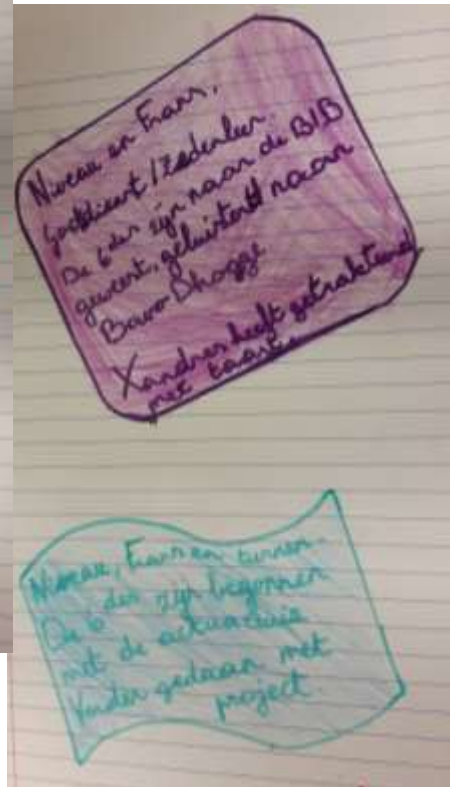 Niveau en Frans,
Godsdienst / Zedenleer.
De 6des zijn naar de BIB
geweest, geluisterd naar
Bavo Dhooge
Xandres heeft getrakteerd
met taart.
Niveau, Frans en turnen.
De 6des zijn begonnen
met de
Verder gedaan met
project.